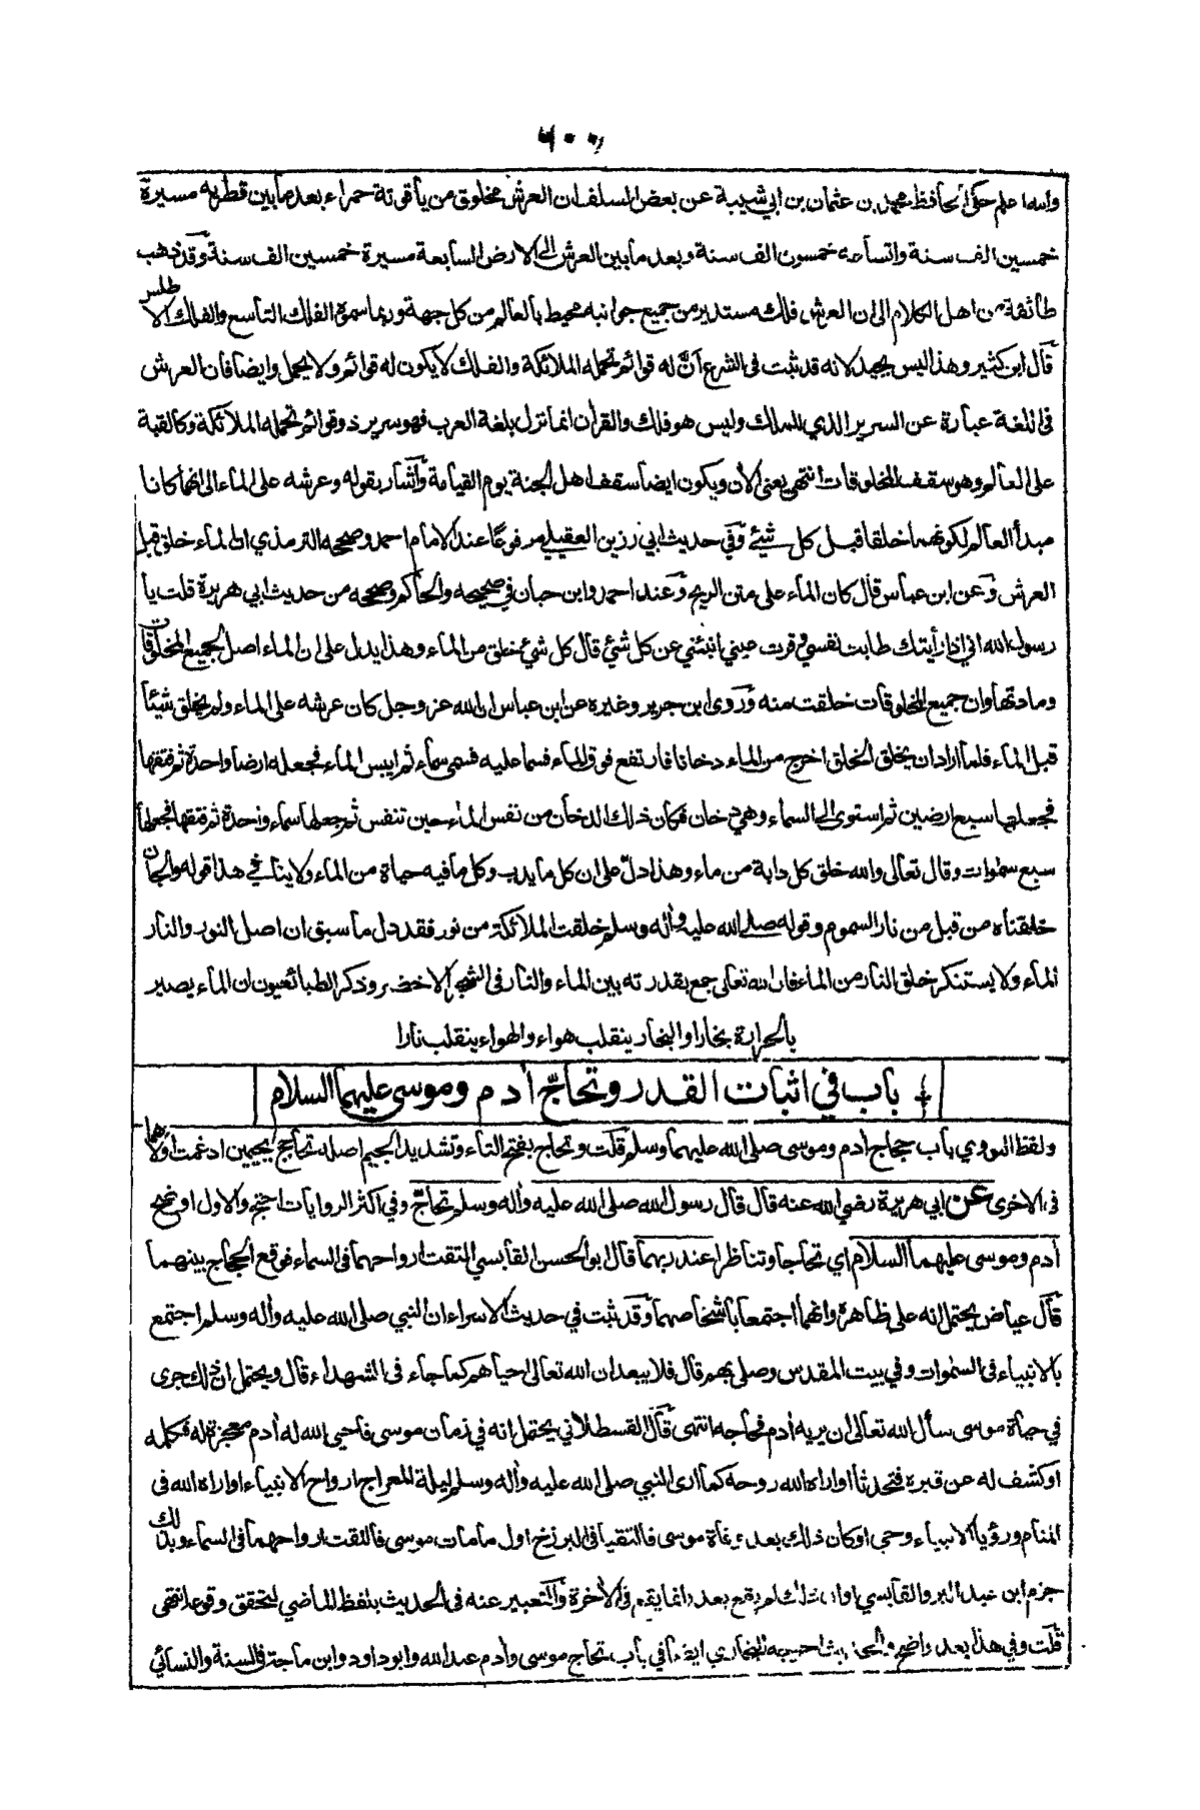 ٦٠٠
والله اعلم حكى الحافظ محمد بن عثمان بن ابي شيبة عن بعض السلف ان العرش مخلوق من ياقوتة حمراء بعد ما بين قطريه مسيرة
خمسين الف سنة واتساعه خمسون الف سنة وبعد ما بين العرش الى الارض السابعة مسيرة خمسين الف سنة وقد ذهب
طائفة من اهل الكلام الى ان العرش فلك مستدير من جميع جوانبه محيط بالعالم من كل جهة وربما سموه الفلك التاسع والفلك الاطلس
قال ابن كثير وهذا ليس بجيد لانه قد ثبت فى الشرع أنّ له قوائم تحمله الملائكة والفلك لا يكون له قوائم ولا يحمل وايضا فان العرش
فى اللغة عبارة عن السرير الذي للملك وليس هو فلك والقرأن انما نزل بلغة العرب فهو سرير ذو قوائم تحمله الملائكة وكالقبة
على العالم وهو سقف المخلوقات انتهى يعني الأن ويكون ايضا سقف اهل الجنة يوم القيامة وأشار بقوله وعرشه على الماء الى انهما كانا
مبدأ العالم لكونهما خلقا قبل كل شيئ وفي حديث ابي رزين العقيلي مرفوعًا عند الامام احمد وصححه الترمذي ان الماء خلق قبل
العرش وعن ابن عباس قال كان الماء على متن الريح وعند احمد وابن حبان في صحيحه والحاكم وصححه من حديث ابي هريرة قلت يا
رسول الله اني اذا رأيتك طابت نفسي وقرت عيني انبئني عن كل شئ قال كل شئ خلق من الماء وهذا يدل على ان الماء اصل لجميع المخلوقات
ومادتها وان جميع المخلوقات خلقت منه وروى ابن جرير وغيره عن ابن عباس ان الله عز وجل كان عرشه على الماء ولم يخلق شيئًا
قبل الماء فلما اراد ان يخلق الخلق اخرج من الماء دخانا فارتفع فوق الماء فسما عليه فسمى سماء ثم ايبس الماء فجعله ارضا واحدة ثم فتقها
فجعلها سبع ارضين ثم استوى الى السماء وهي دخان فكان ذلك الدخان من نفس الماء حين تنفس ثم جعلها سماء واحدة ثم فتقها فجعلها
سبع سموات وقال تعالى والله خلق كل دابة من ماء وهذا دلّ على ان كل ما يدب وكل ما فيه حياة من الماء ولا ينافي هذا قوله والجان
خلقناه من قبل من نار السموم وقوله صلى الله عليه وأله وسلم خلقت الملائكة من نور فقد دل ما سبق ان اصل النور والنار
الماء ولا يستنكر خلق النار من الماء فان الله تعالى جمع بقدرته بين الماء والنار فى الشجر الاخضر وذكر الطبائعيون ان الماء يصير
بالحرارة بخارا والبخار ينقلب هواء والهواء ينقلب نارا
باب في اثبات القدر وتحاجّ أدم وموسى عليهما السلام
ولفظ النووي باب حجاج أدم وموسى صلى الله عليهما وسلم قلت وتحاج بفتح التاء وتشديد الجيم اصله تحاجج بجيمين ادغمت اولاهما
فى الاخرى عن ابي هريرة رضي الله عنه قال قال رسول الله صلى الله عليه وأله وسلم تحاجّ وفي اكثر الروايات احتج والاول اوضح
أدم وموسى عليهما السلام اي تحاجا وتناظرا عند ربهما قال ابو الحسن القابسي التقت ارواحهما فى السماء فوقع الحجاج بينهما
قال عياض يحتمل انه على ظاهره وانهما اجتمعا باشخاصهما وقد ثبت في حديث الاسراء ان النبي صلى الله عليه وأله وسلم اجتمع
بالانبياء فى السموات وفي بيت المقدس وصلى بهم قال فلا يبعد ان الله تعالى احياهم كما جاء فى الشهداء قال ويحتمل ان ذلك جرى
في حياة موسى سأل الله تعالى ان يريه أدم فحاجه انتهى قال القسطلاني يحتمل انه في زمان موسى فأحيى الله له أدم معجزة له فكلمه
او كشف له عن قبره فتحدثا او اراه الله روحه كما ارى النبي صلى الله عليه وأله وسلم ليلة المعراج ارواح الانبياء او اراه الله فى
المنام ورؤيا الانبياء وحي او كان ذلك بعد وفاة موسى فالتقيا فى البرزخ اول ما مات موسى فالتقت ارواحهما فى السماء وبذلك
جزم ابن عبد البر والقابسي او ان ذلك لم يقع بعد وانما يقع فى الأخرة والتعبير عنه فى الحديث بلفظ الماضي لتحقق وقوعه انتهى
قلت وفي هذا بعد واضح والحديث اخرجه البخاري ايضا في باب تحاج موسى وأدم عند الله وابو داود وابن ماجة فى السنة والنسائي